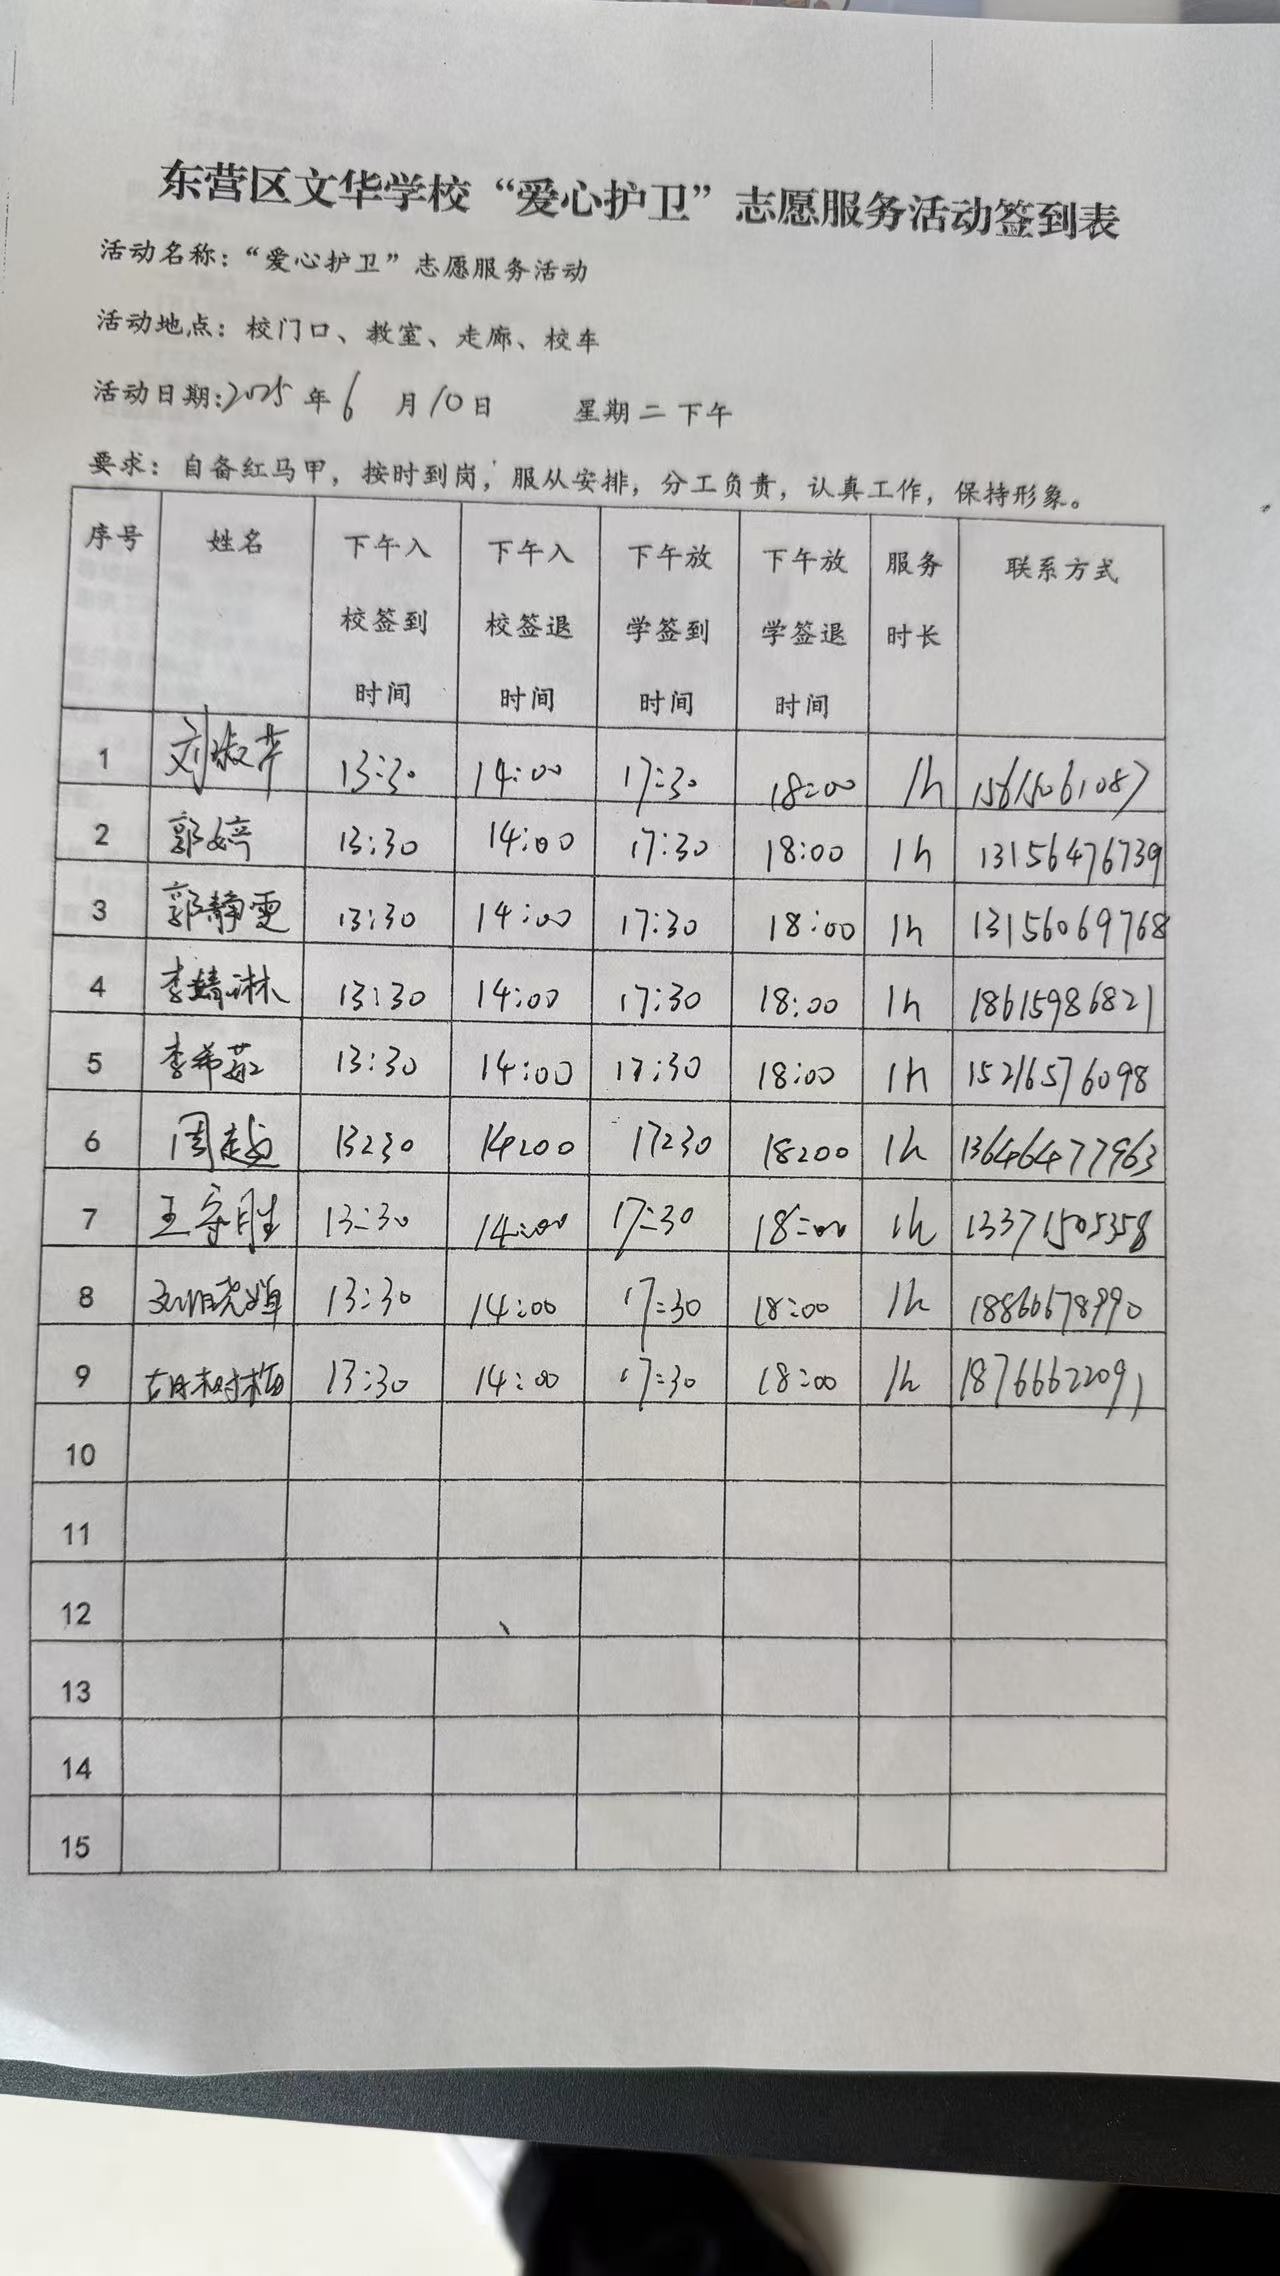 东营区文华学校“爱心护卫”志愿服务活动签到表
活动名称：“爱心护卫”志愿服务活动
活动地点：校门口、教室、走廊、校车
活动日期:2025年6月10日 星期二下午
要求：自备红马甲，按时到岗，服从安排，分工负责，认真工作，保持形象。
序号 姓名 下午入校签到时间 下午入校签退时间 下午放学签到时间 下午放学签退时间 服务时长 联系方式
1 刘淑芹 13:30 14:00 17:30 18:00 1h 15615061087
2 郭婷 13:30 14:00 17:30 18:00 1h 13156476739
3 郭静雯 13:30 14:00 17:30 18:00 1h 13156069768
4 李婧淋 13:30 14:00 17:30 18:00 1h 18615986821
5 李希 13:30 14:00 17:30 18:00 1h 15216576098
6 周越 13:30 14:00 17:30 18:00 1h 13646477963
7 王守胜 13:30 14:00 17:30 18:00 1h 13371505358
8 13:30 14:00 17:30 18:00 1h 18866678990
9 胡树梅 13:30 14:00 17:30 18:00 1h 18766622091
10
11
12
13
14
15